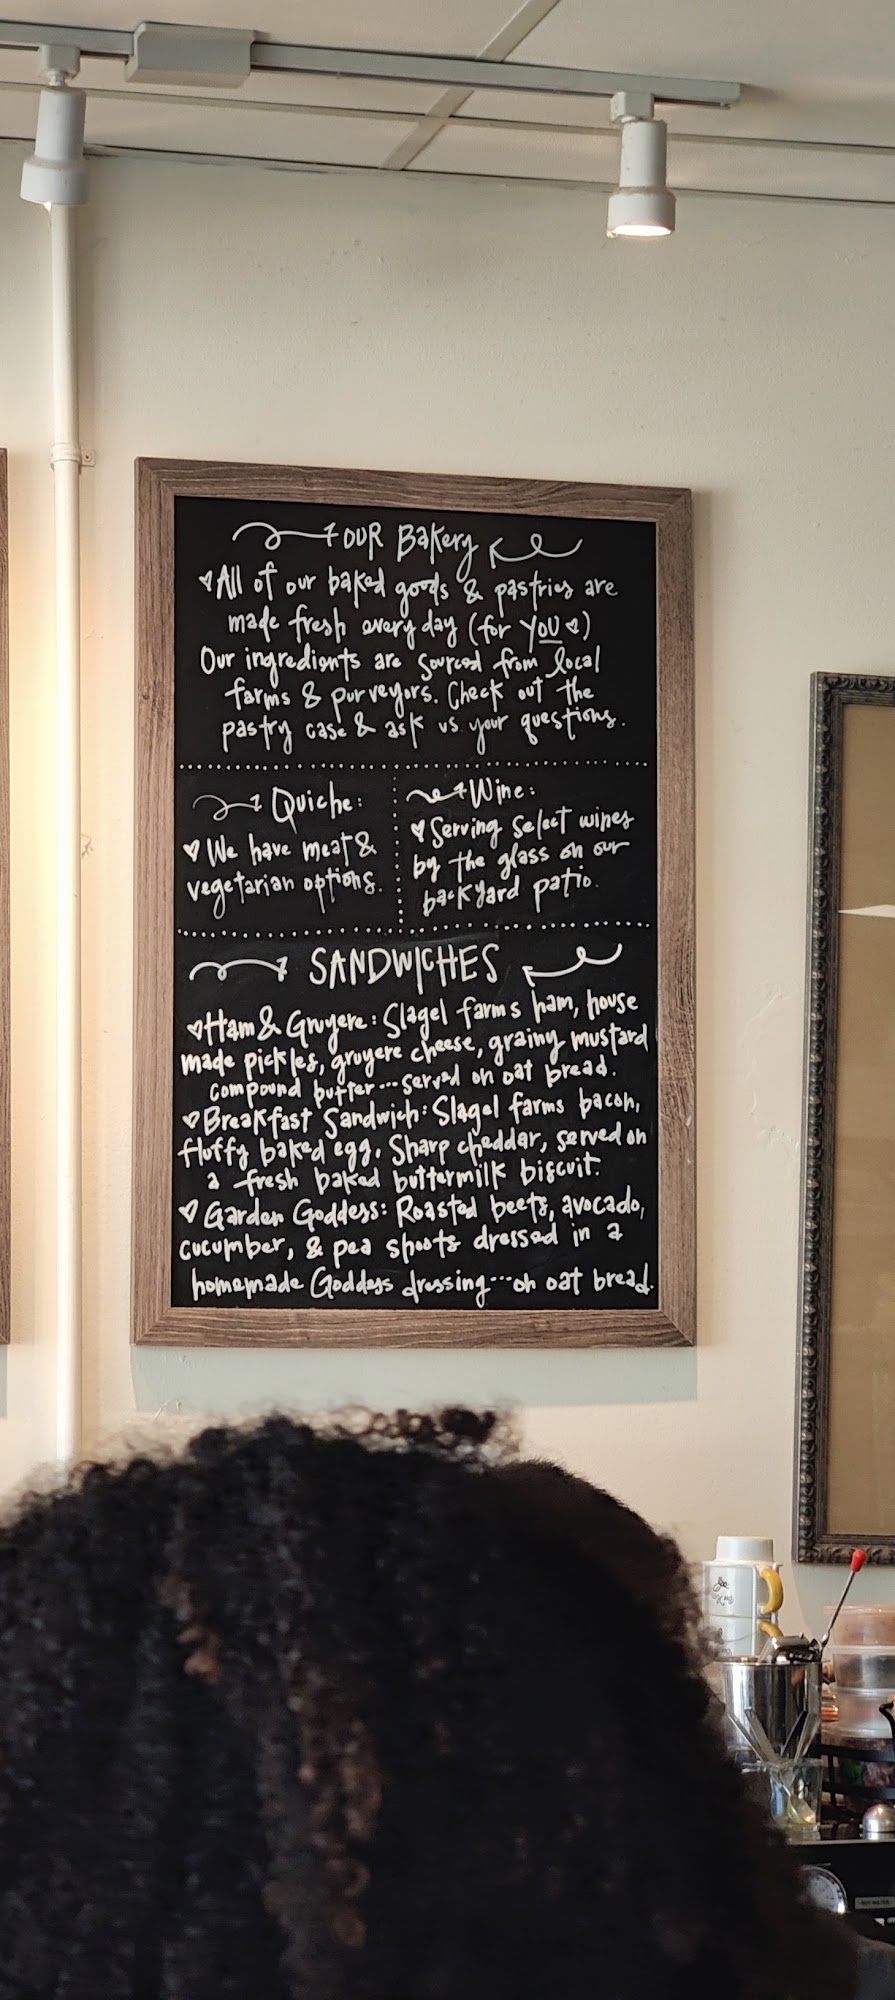 OUR Bakery
All of our baked goods & pastries are
made fresh every day (for YOU ♥)
Our ingredients are sourced from local
farms & purveyors. Check out the
pastry case & ask us your questions.
Quiche:
♥ We have meat &
vegetarian options.
Wine:
♥ Serving select wines
by the glass on our
backyard patio.
SANDWICHES
♥ Ham & Gruyere: Slagel farms ham, house
made pickles, gruyere cheese, grainy mustard
compound butter... served on oat bread.
♥ Breakfast Sandwich: Slagel farms bacon,
fluffy baked egg, Sharp cheddar, served on
a fresh baked buttermilk biscuit.
♥ Garden Goddess: Roasted beets, avocado,
cucumber, & pea shoots dressed in a
homemade Goddess dressing... on oat bread.
HOT WATER